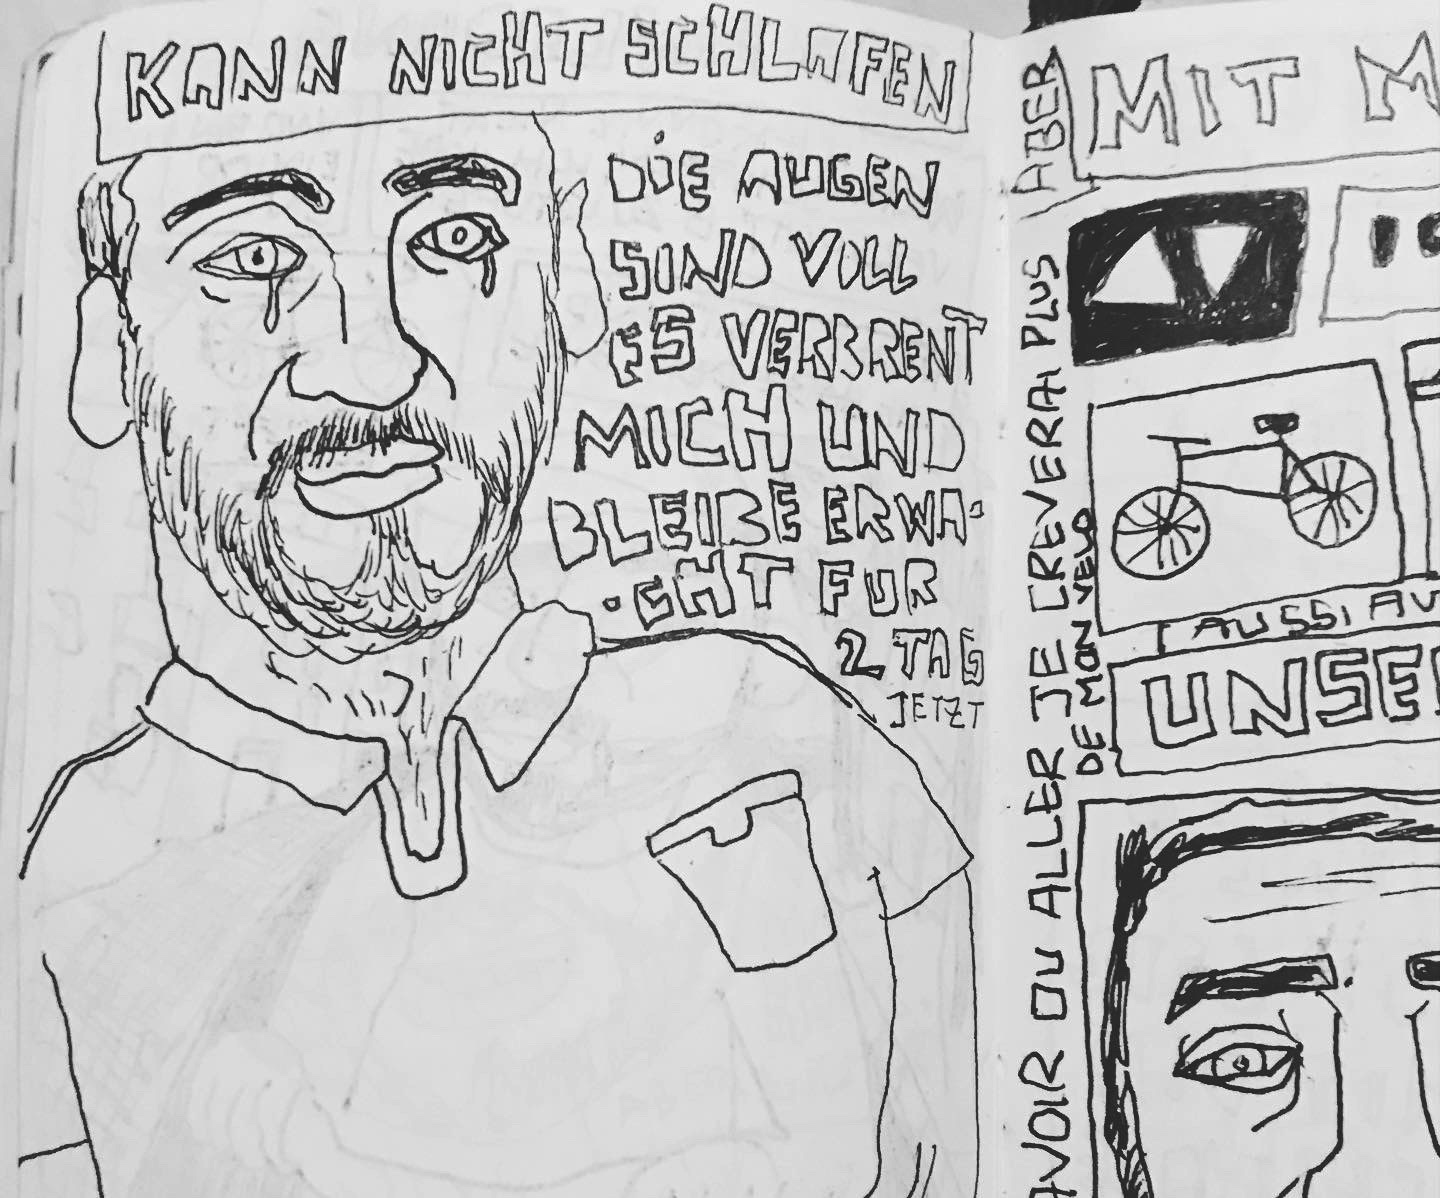 KANN NICHT SCHLAFEN
DIE AUGEN
SIND VOLL
ES VERBRENT
MICH UND
BLEIBE ERWA-
-CHT FUR
2 TAG
JETZT
ABER
MIT M
AVOIR OU ALLER JE CREVERAI PLUS
DE MON VELO
AUSSI AU
UNSE